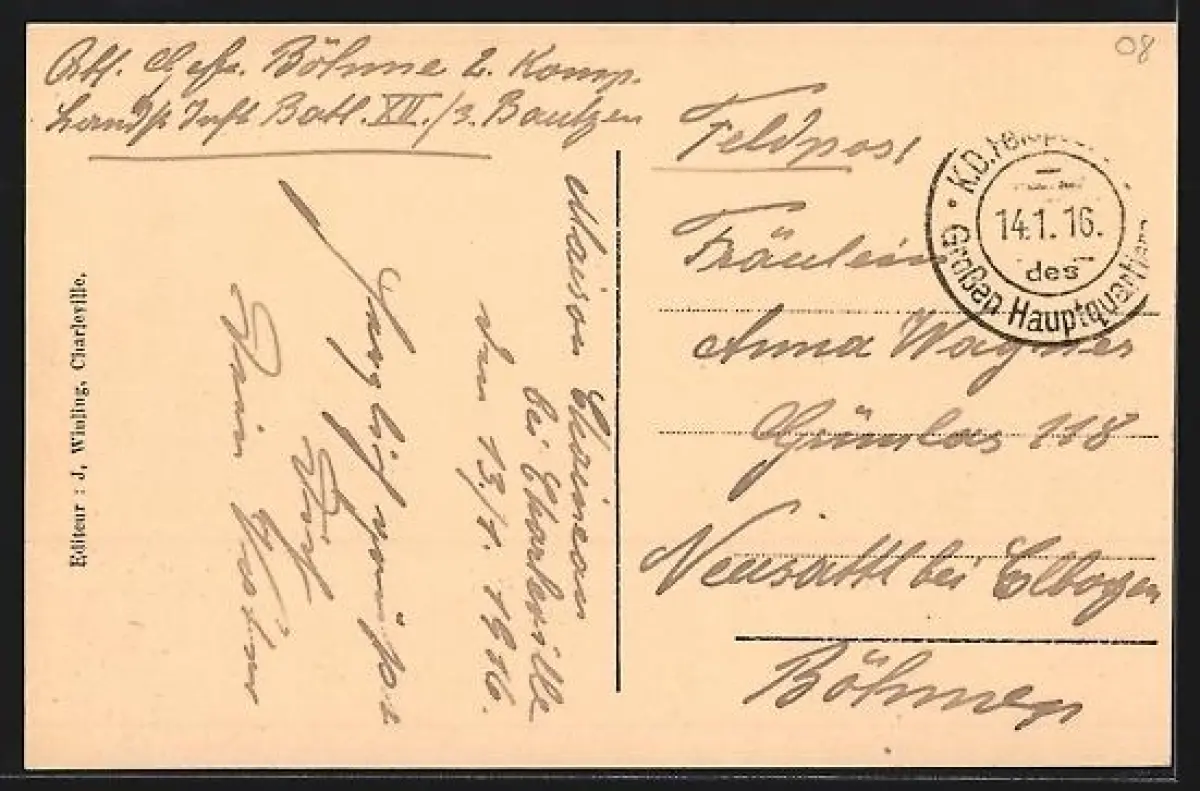 08
Abs. Gefr. Böhme 2. Komp.
Landst Inft Batl. XII./3. Bautzen
Feldpost
K.D. Feldpost
14.1.16.
des
Großen Hauptquartiers
Fräulein
Anna Wagner
Grünlas 118
Neusattl bei Elbogen
Böhmen
Maison Chaineau
bei Charleville
den 13./1. 1916.
Herzlich grüßt
Dich
Dein
Editeur : J, Winling, Charleville.